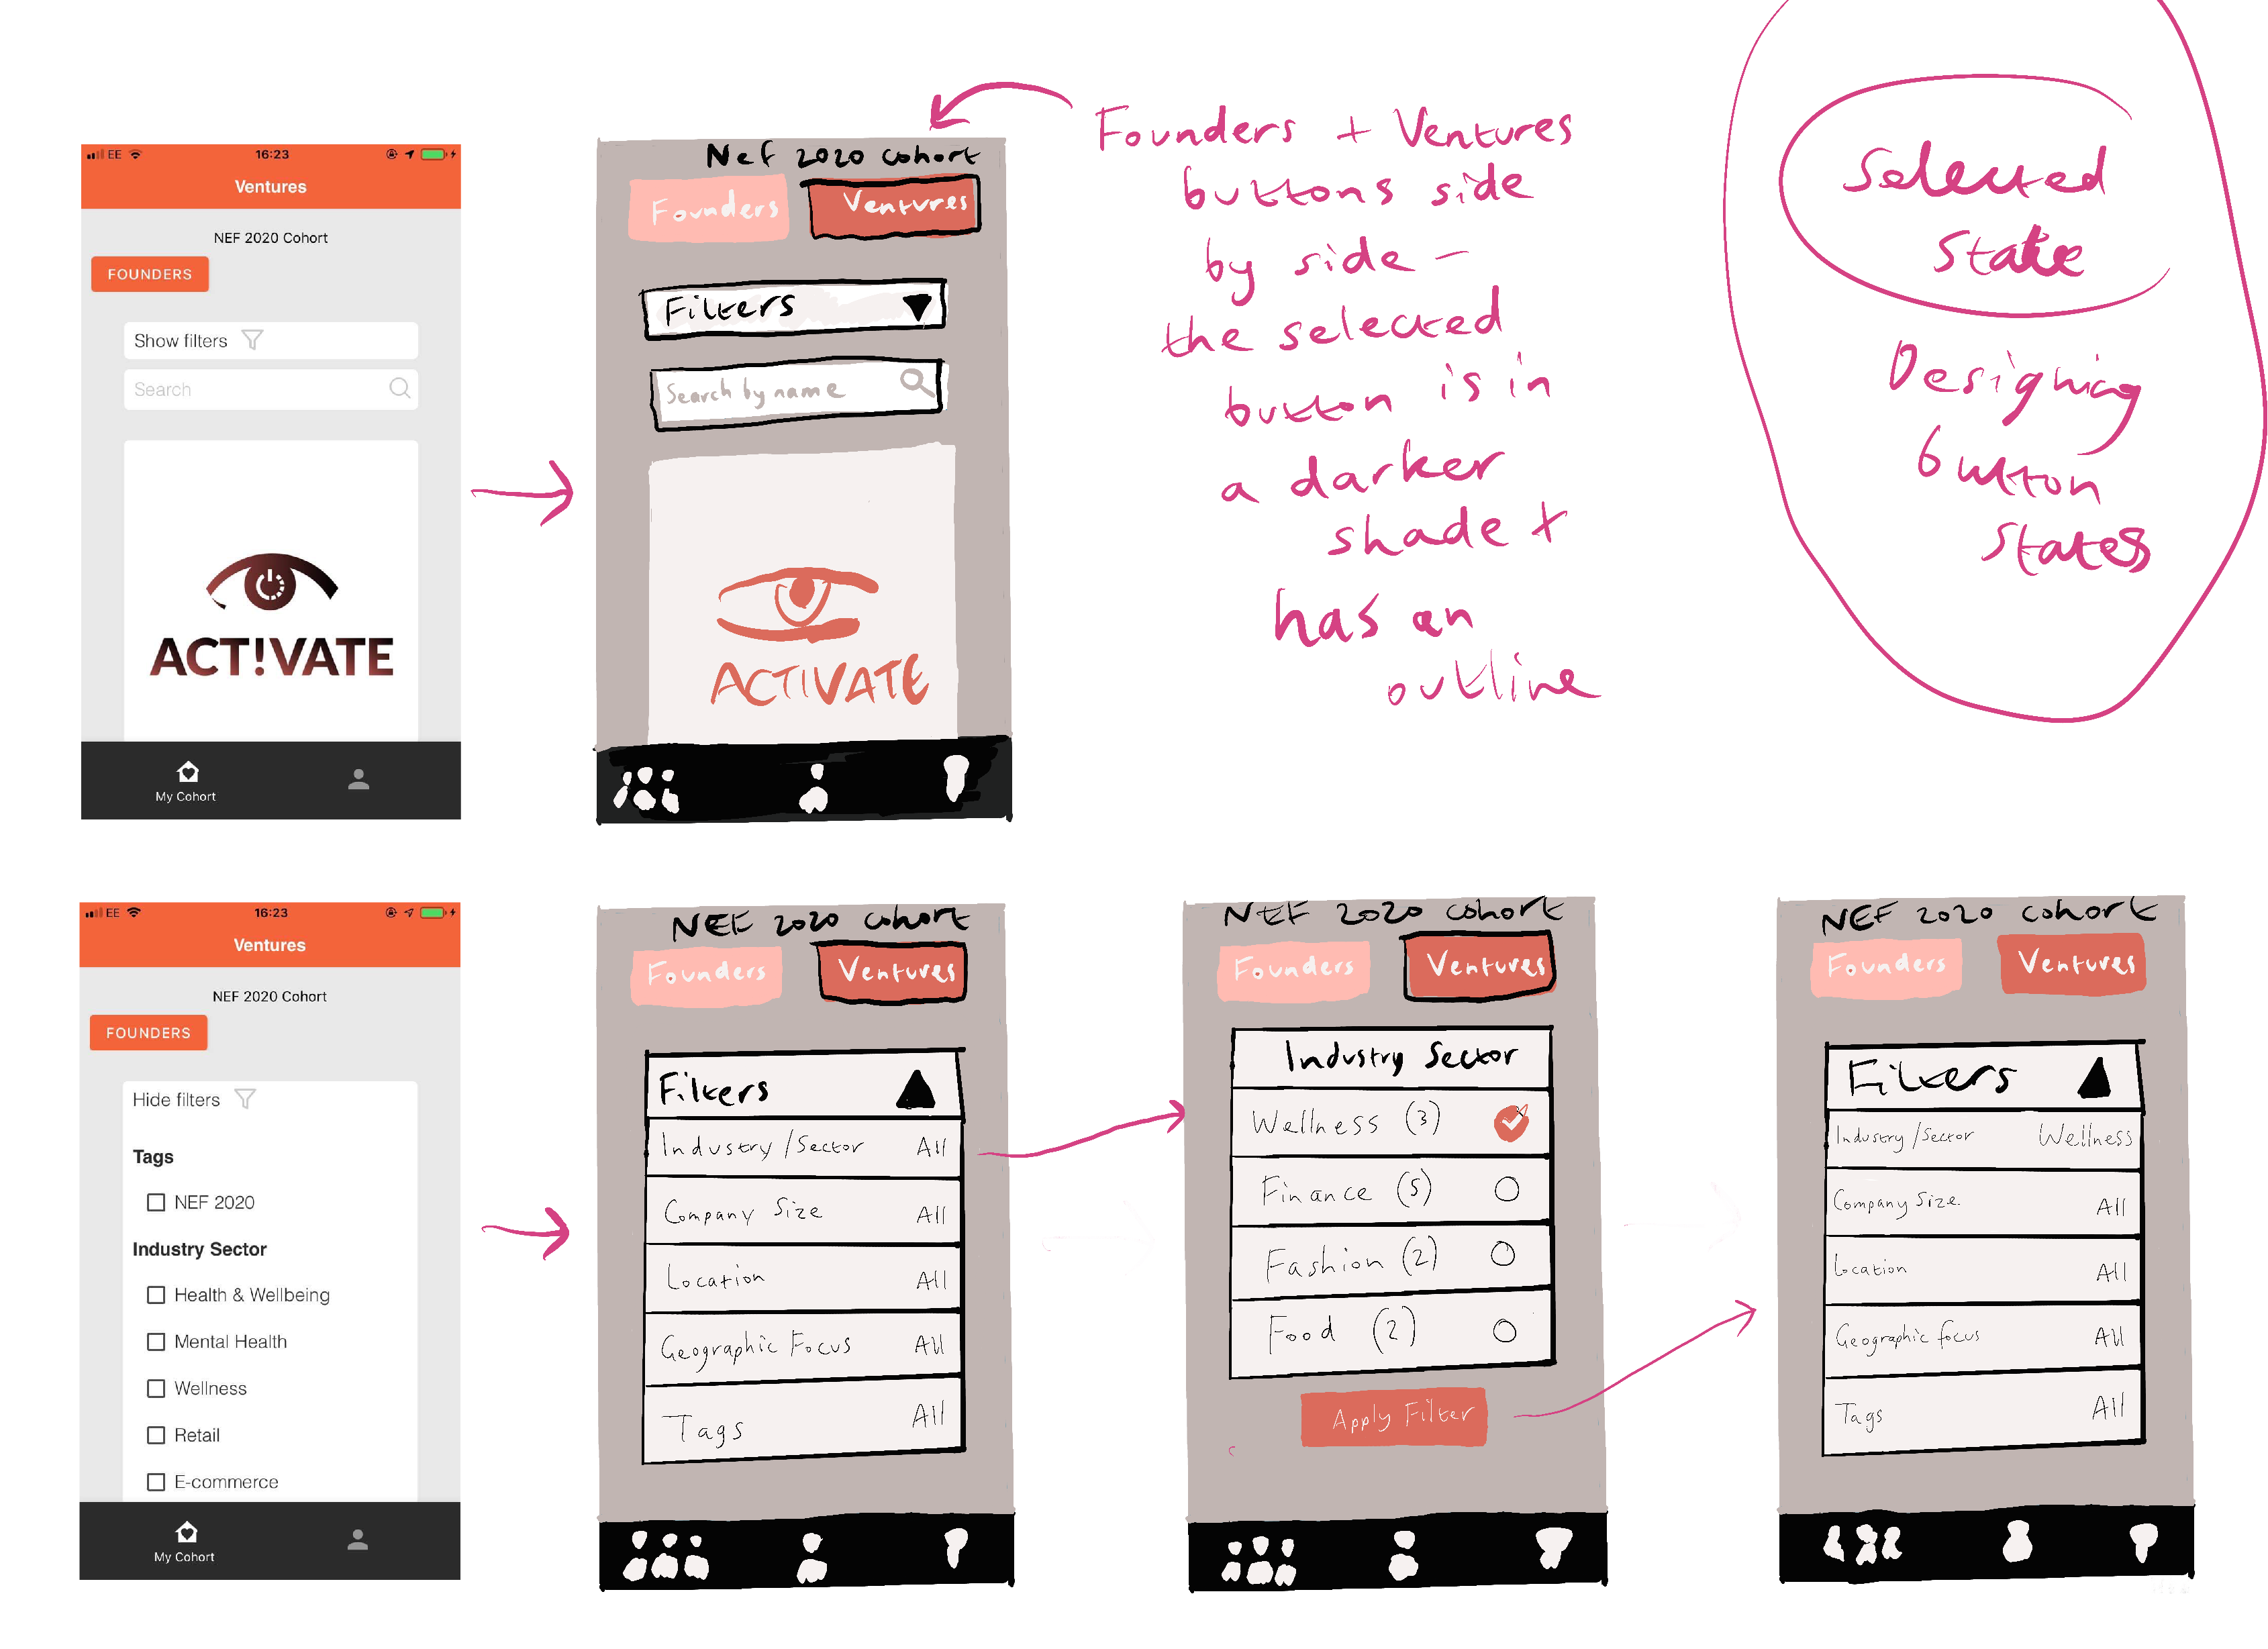 EE 16:23
Ventures
NEF 2020 Cohort
FOUNDERS
Show filters
Search
ACT!VATE
My Cohort
Nef 2020 cohort
Founders Ventures
Filters
Search by name
ACTIVATE
Founders + Ventures
buttons side
by side -
the selected
button is in
a darker
shade +
has an
outline
Selected
State
Designing
button
states
EE 16:23
Ventures
NEF 2020 Cohort
FOUNDERS
Hide filters
Tags
NEF 2020
Industry Sector
Health & Wellbeing
Mental Health
Wellness
Retail
E-commerce
My Cohort
NEF 2020 cohort
Founders Ventures
Filters
Industry/Sector All
Company Size All
Location All
Geographic Focus All
Tags All
NEF 2020 cohort
Founders Ventures
Industry Sector
Wellness (3)
Finance (5)
Fashion (2)
Food (2)
Apply Filter
NEF 2020 cohort
Founders Ventures
Filters
Industry/Sector Wellness
Company Size. All
Location All
Geographic focus All
Tags All